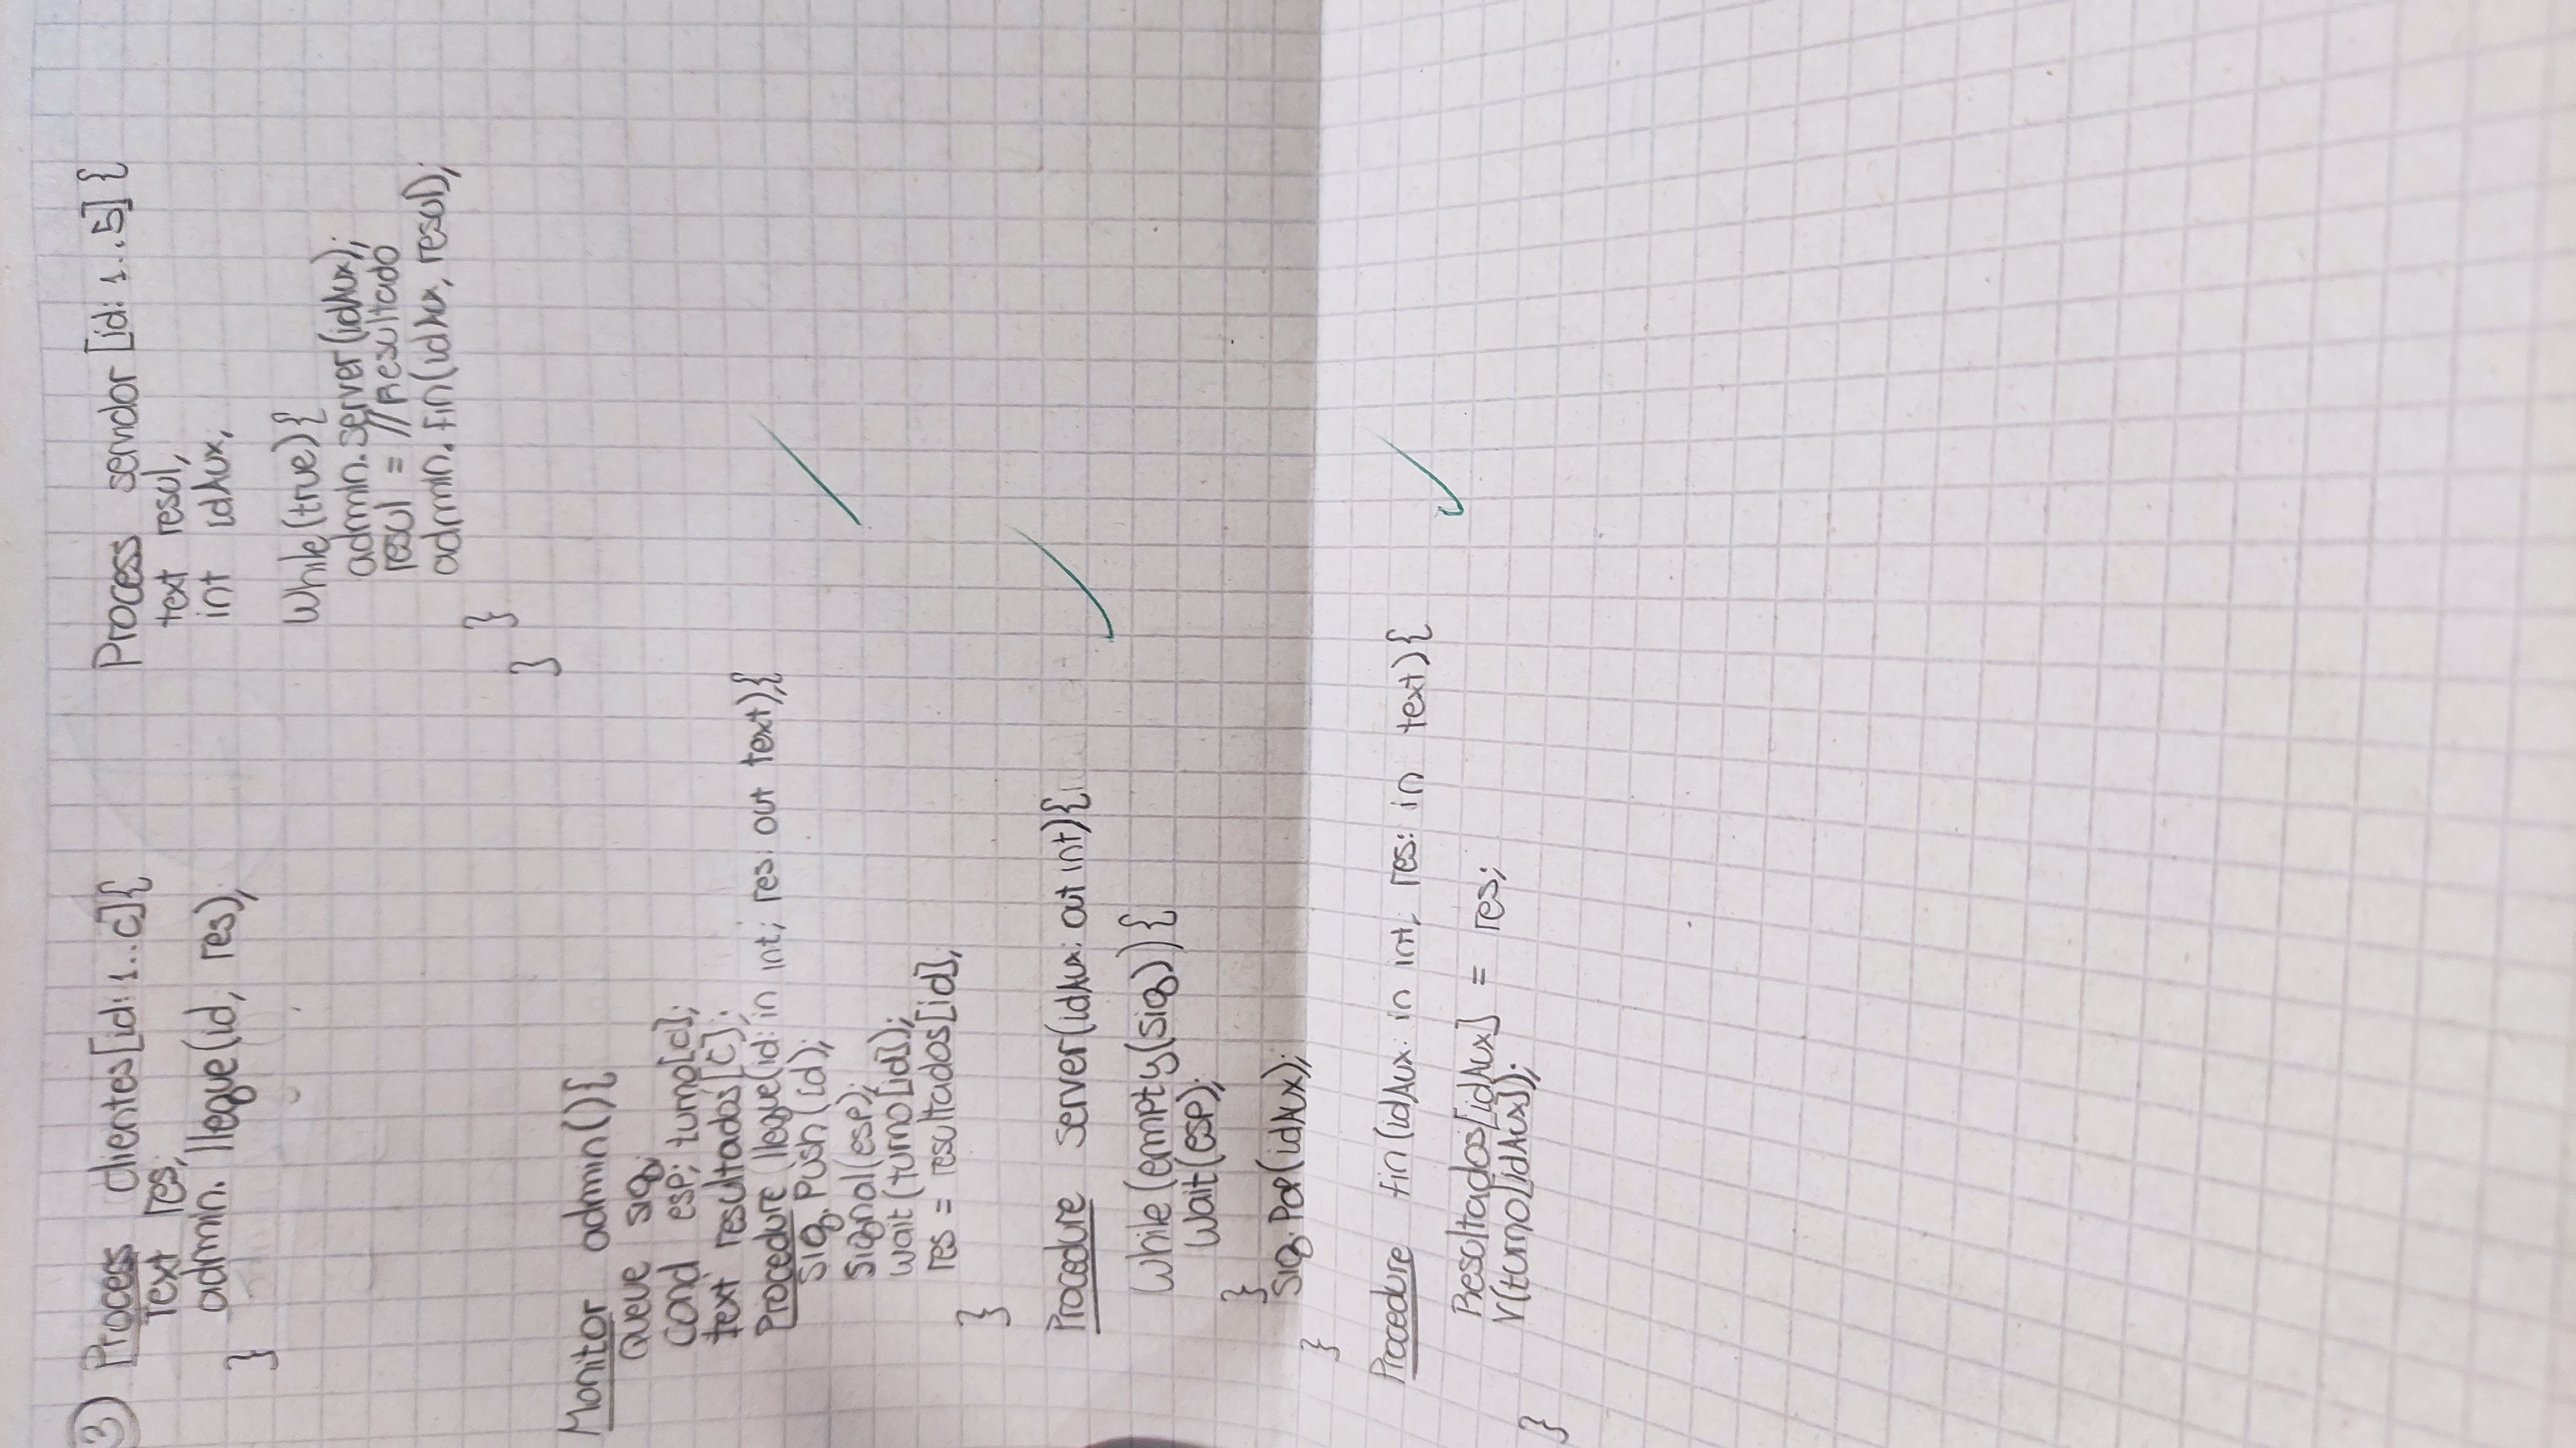 3) Process clientes[id: 1..C]{
Text res;
admin. llegue(id, res);
}
Process servidor [id: 1..5] {
text resul;
int idAux;
While(true){
admin.server(idAux);
resul = //Resultado
admin.fin(idAux, resul);
}
}
Monitor admin(){
Queue sig;
Cond esp; turno[C];
text resultados[C];
Procedure llegue(id: in int; res: out text){
sig.Push(id);
signal(esp);
wait(turno[id]);
res = resultados[id];
}
Procedure server(idAux: out int){
While(empty(sig)){
Wait(esp);
}
sig.Pop(idAux);
}
Procedure fin(idAux: in int; res: in text){
Resultados[idAux] = res;
V(turno[idAux]);
}